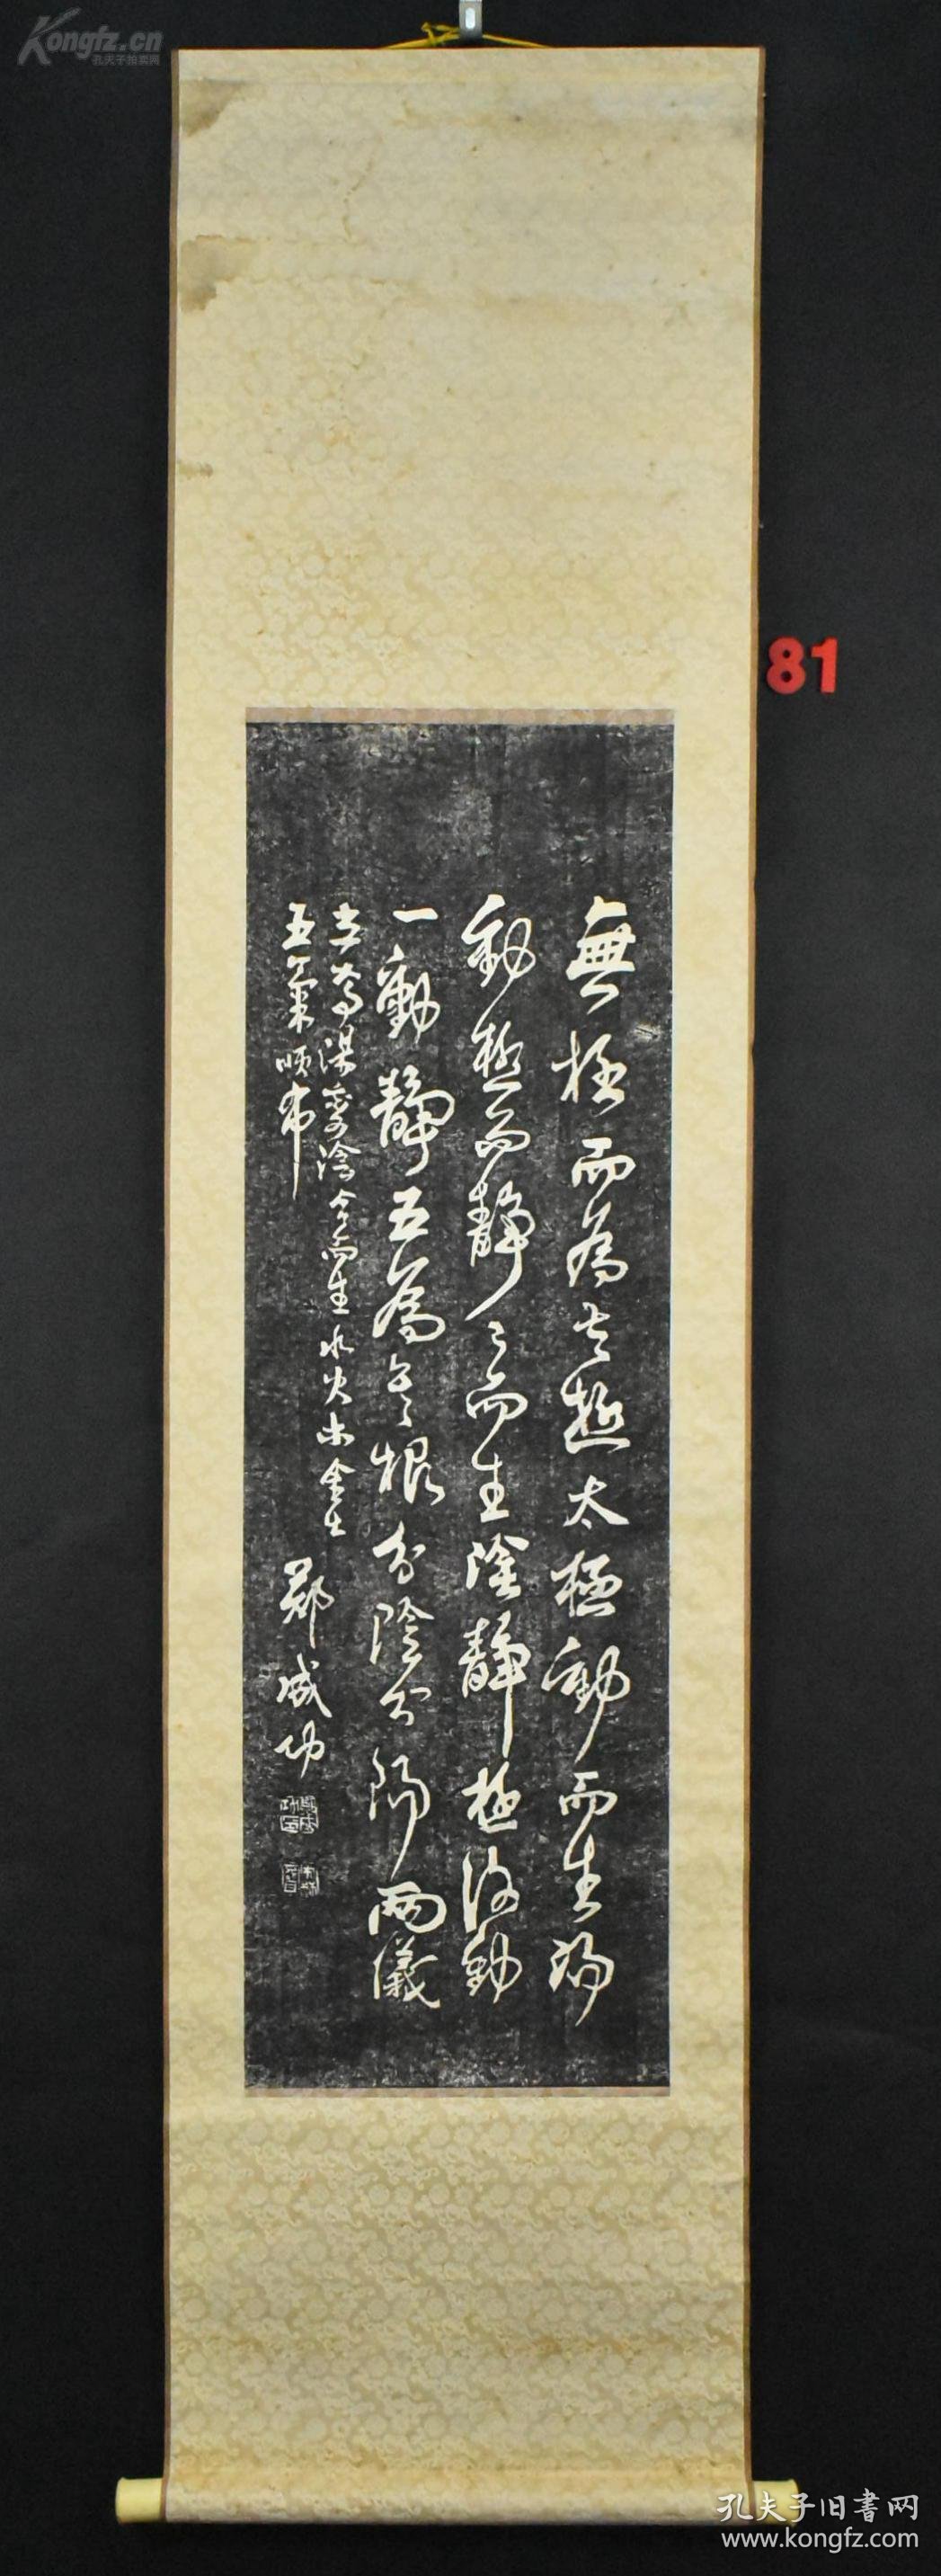 Kongfz.cn
孔夫子拍卖网
81
無極而為太極太極動而生陽
動極而靜靜而生陰靜極復動
一動一靜互為其根分陰分陽兩儀
立焉陽變陰合而生水火木金土
五氣順布
鄭成功
孔夫子旧書网
www.kongfz.com